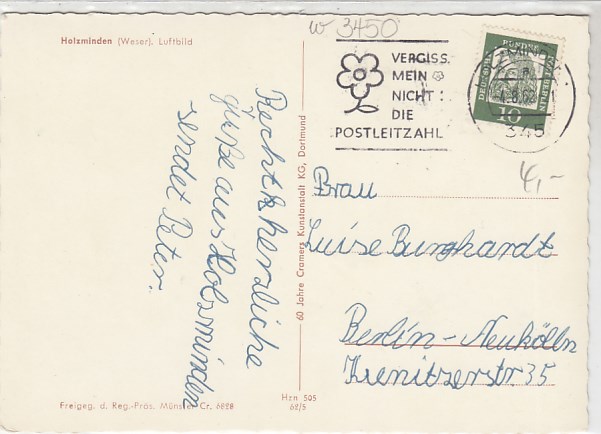 Holzminden (Weser). Luftbild
W 3450
VERGISS
MEIN
NICHT:
DIE
POSTLEITZAHL
DEUTSCHE BUNDESPOST BERLIN
10
345
4,-
Recht herzliche
Grüße aus Holzminden
sendet Peter.
60 Jahre Cramers Kunstanstalt KG, Dortmund
Frau
Luise Burghardt
Berlin-Neukölln
Kienitzerstr 35
Freigeg. d. Reg.-Präs. Münster Cr. 6828
Hzn 505
62/5